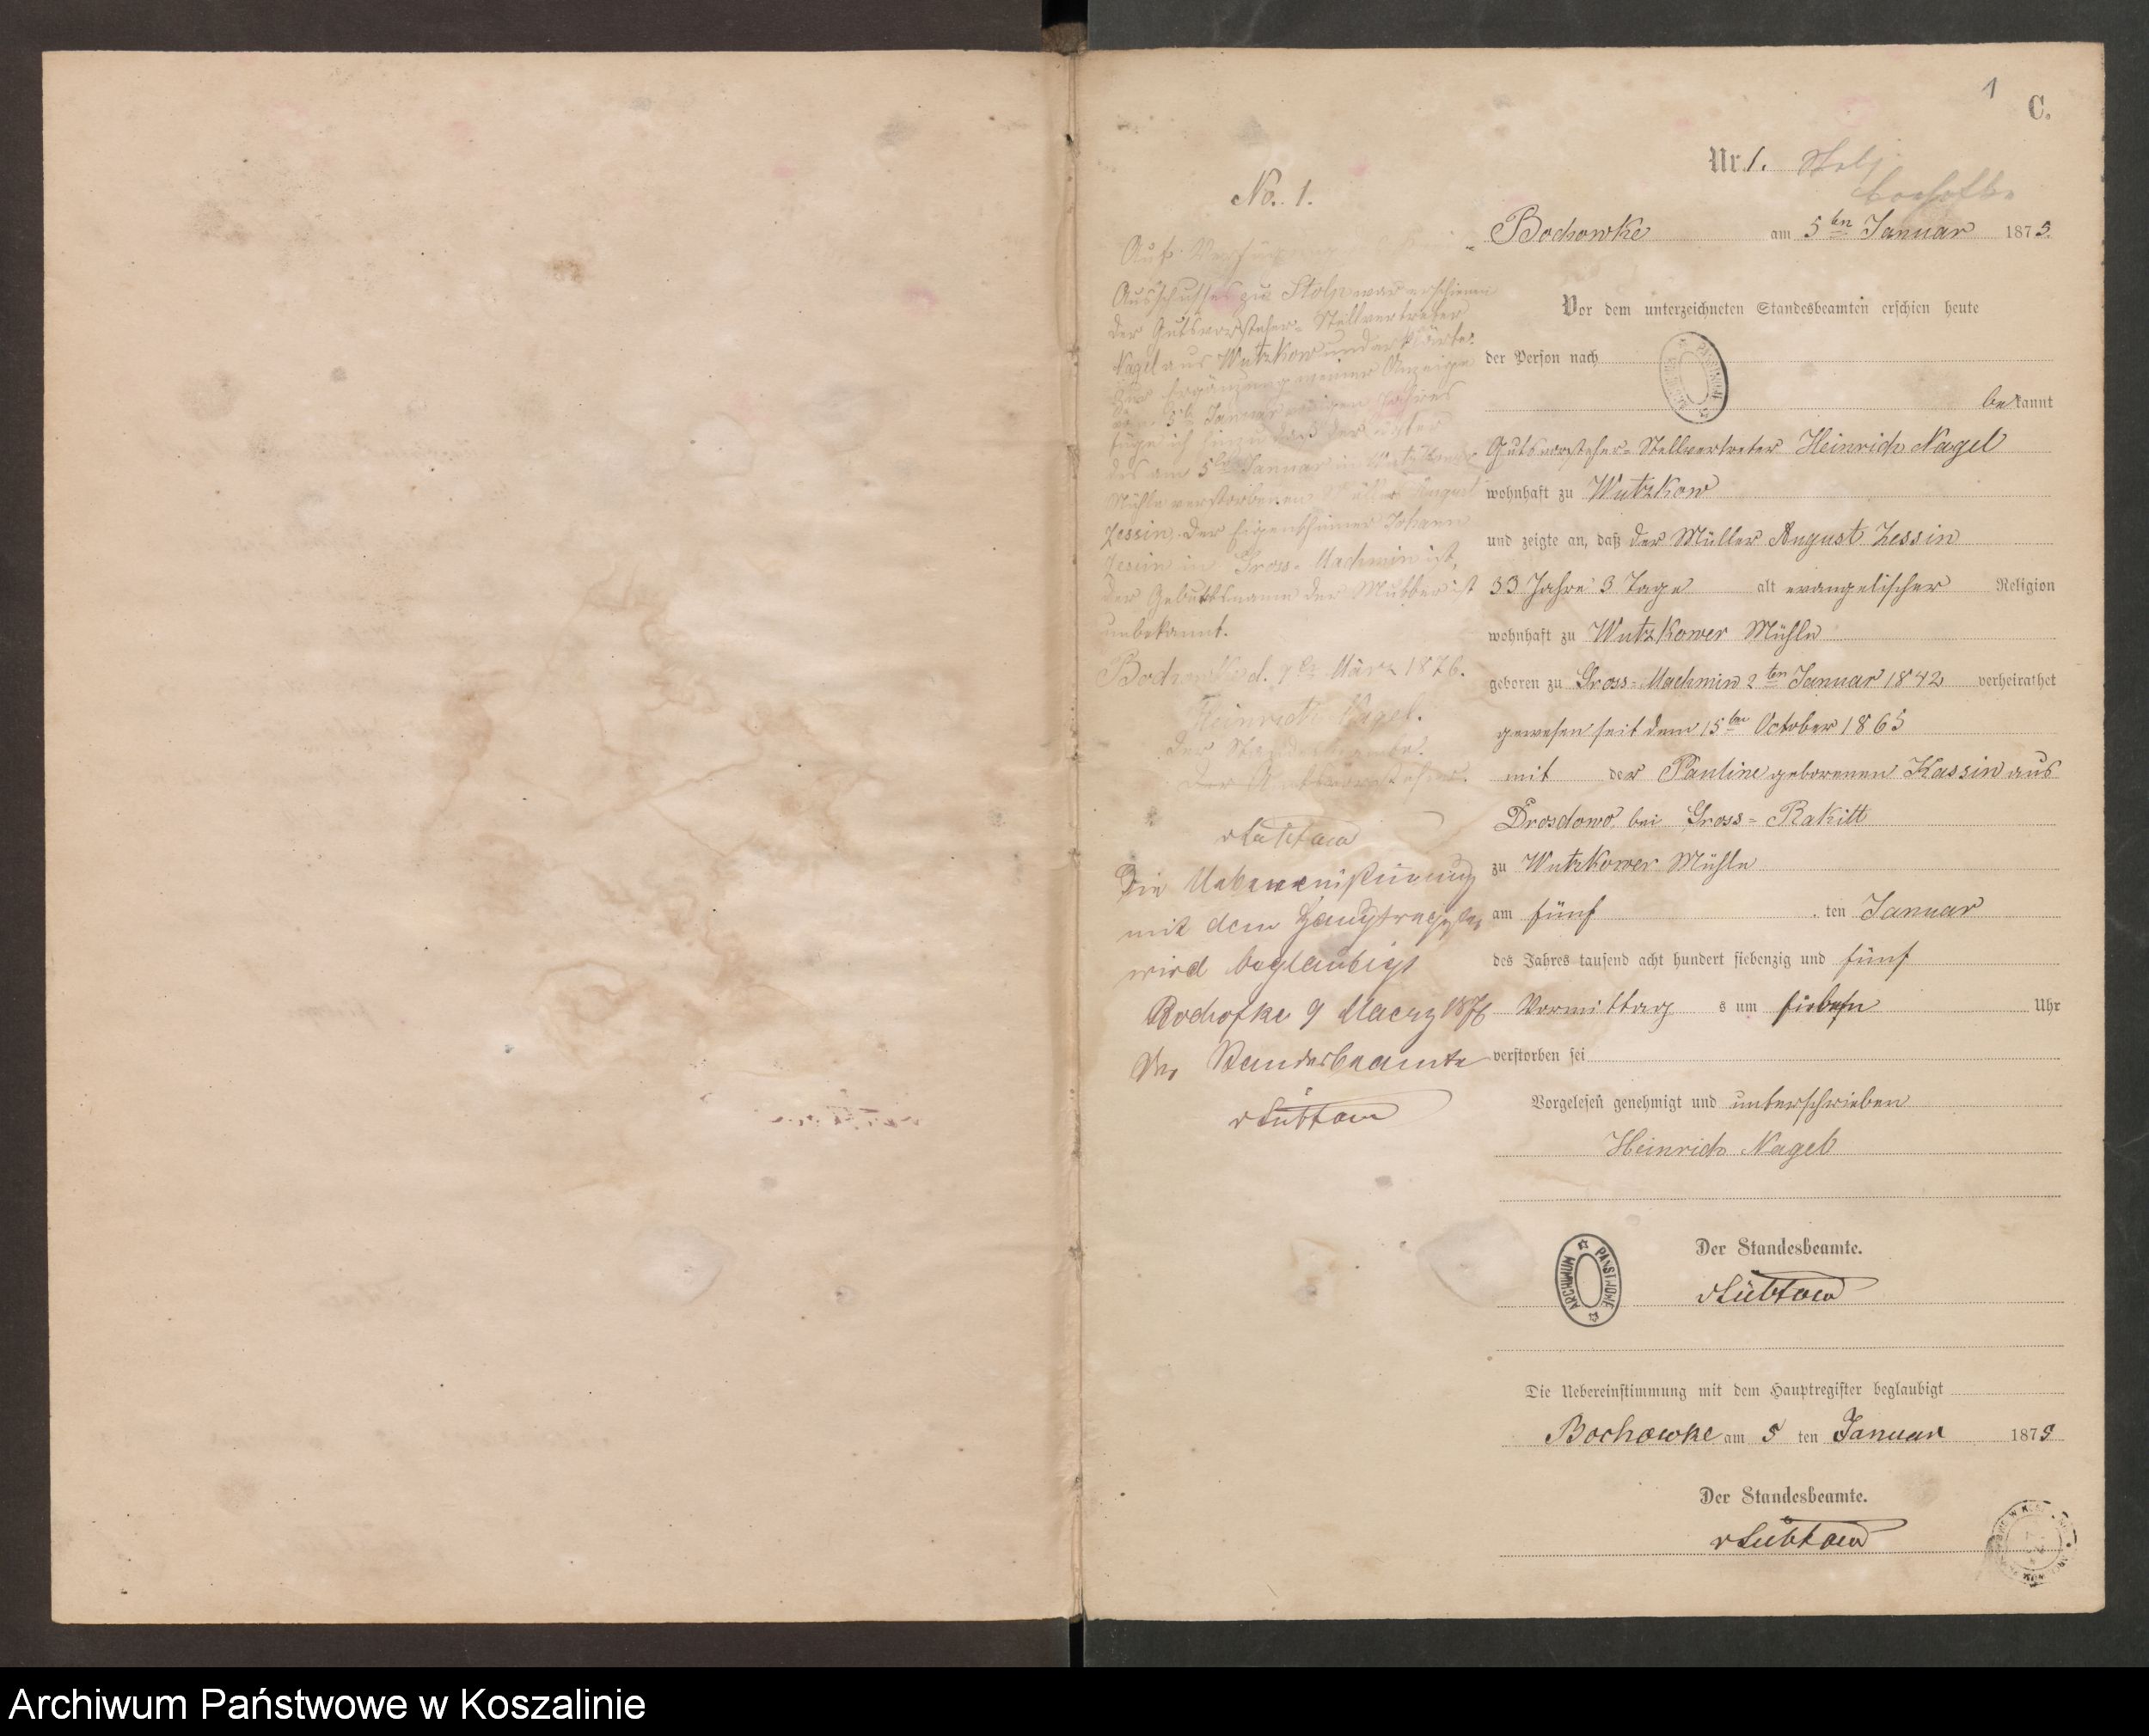 1
C.
Nr. 1.
No. 1.
Bochowke am 5ten Januar 1875.
Vor dem unterzeichneten Standesbeamten erschien heute
der Person nach
bekannt
Gutsvorsteher-Stellvertreter Heinrich Nagel
wohnhaft zu Wutzkow
und zeigte an, daß der Müller August Zessin
33 Jahre 3 Tage alt evangelischer Religion
wohnhaft zu Wutzkower Mühle
geboren zu Gross-Machmin 2ten Januar 1842 verheirathet
gewesen seit dem 15ten October 1865
mit der Pauline geborenen Kassin aus
Drosdowo bei Gross-Rakitt
zu Wutzkower Mühle
am fünf ten Januar
des Jahres tausend acht hundert siebenzig und fünf
Vormittag s um sieben Uhr
verstorben sei
Vorgelesen genehmigt und unterschrieben
Heinrich Nagel
Der Standesbeamte.
vLübtow
Die Uebereinstimmung mit dem Hauptregister beglaubigt
Bochowke am 5 ten Januar 1875
Der Standesbeamte.
vLübtow
Auf
Ausschusses zu Stolp war erschienen
der Gutsvorsteher-Stellvertreter
Nagel aus Wutzkow und erklärte:
Zur Ergänzung meiner Anzeige
vom 5ten Januar vorigen Jahres
füge ich hinzu daß der Vater
des am 5ten Januar in Wutzkower
Mühle verstorbenen Müller August
Zessin, der Eigenthümer Johann
Zessin in Gross-Machmin ist,
der Geburtsname der Mutter ist
unbekannt.
Bochowke d. März 1876.
Heinrich Nagel.
Der Standesbeamte.
Der Amtsvorsteher.
vLübtow
Die Uebereinstimmung
mit dem Hauptregister
wird beglaubigt
Bochofke 9 Maerz 1876
Der Standesbeamte
vLübtow
ARCHIWUM PAŃSTWOWE
Archiwum Państwowe w Koszalinie